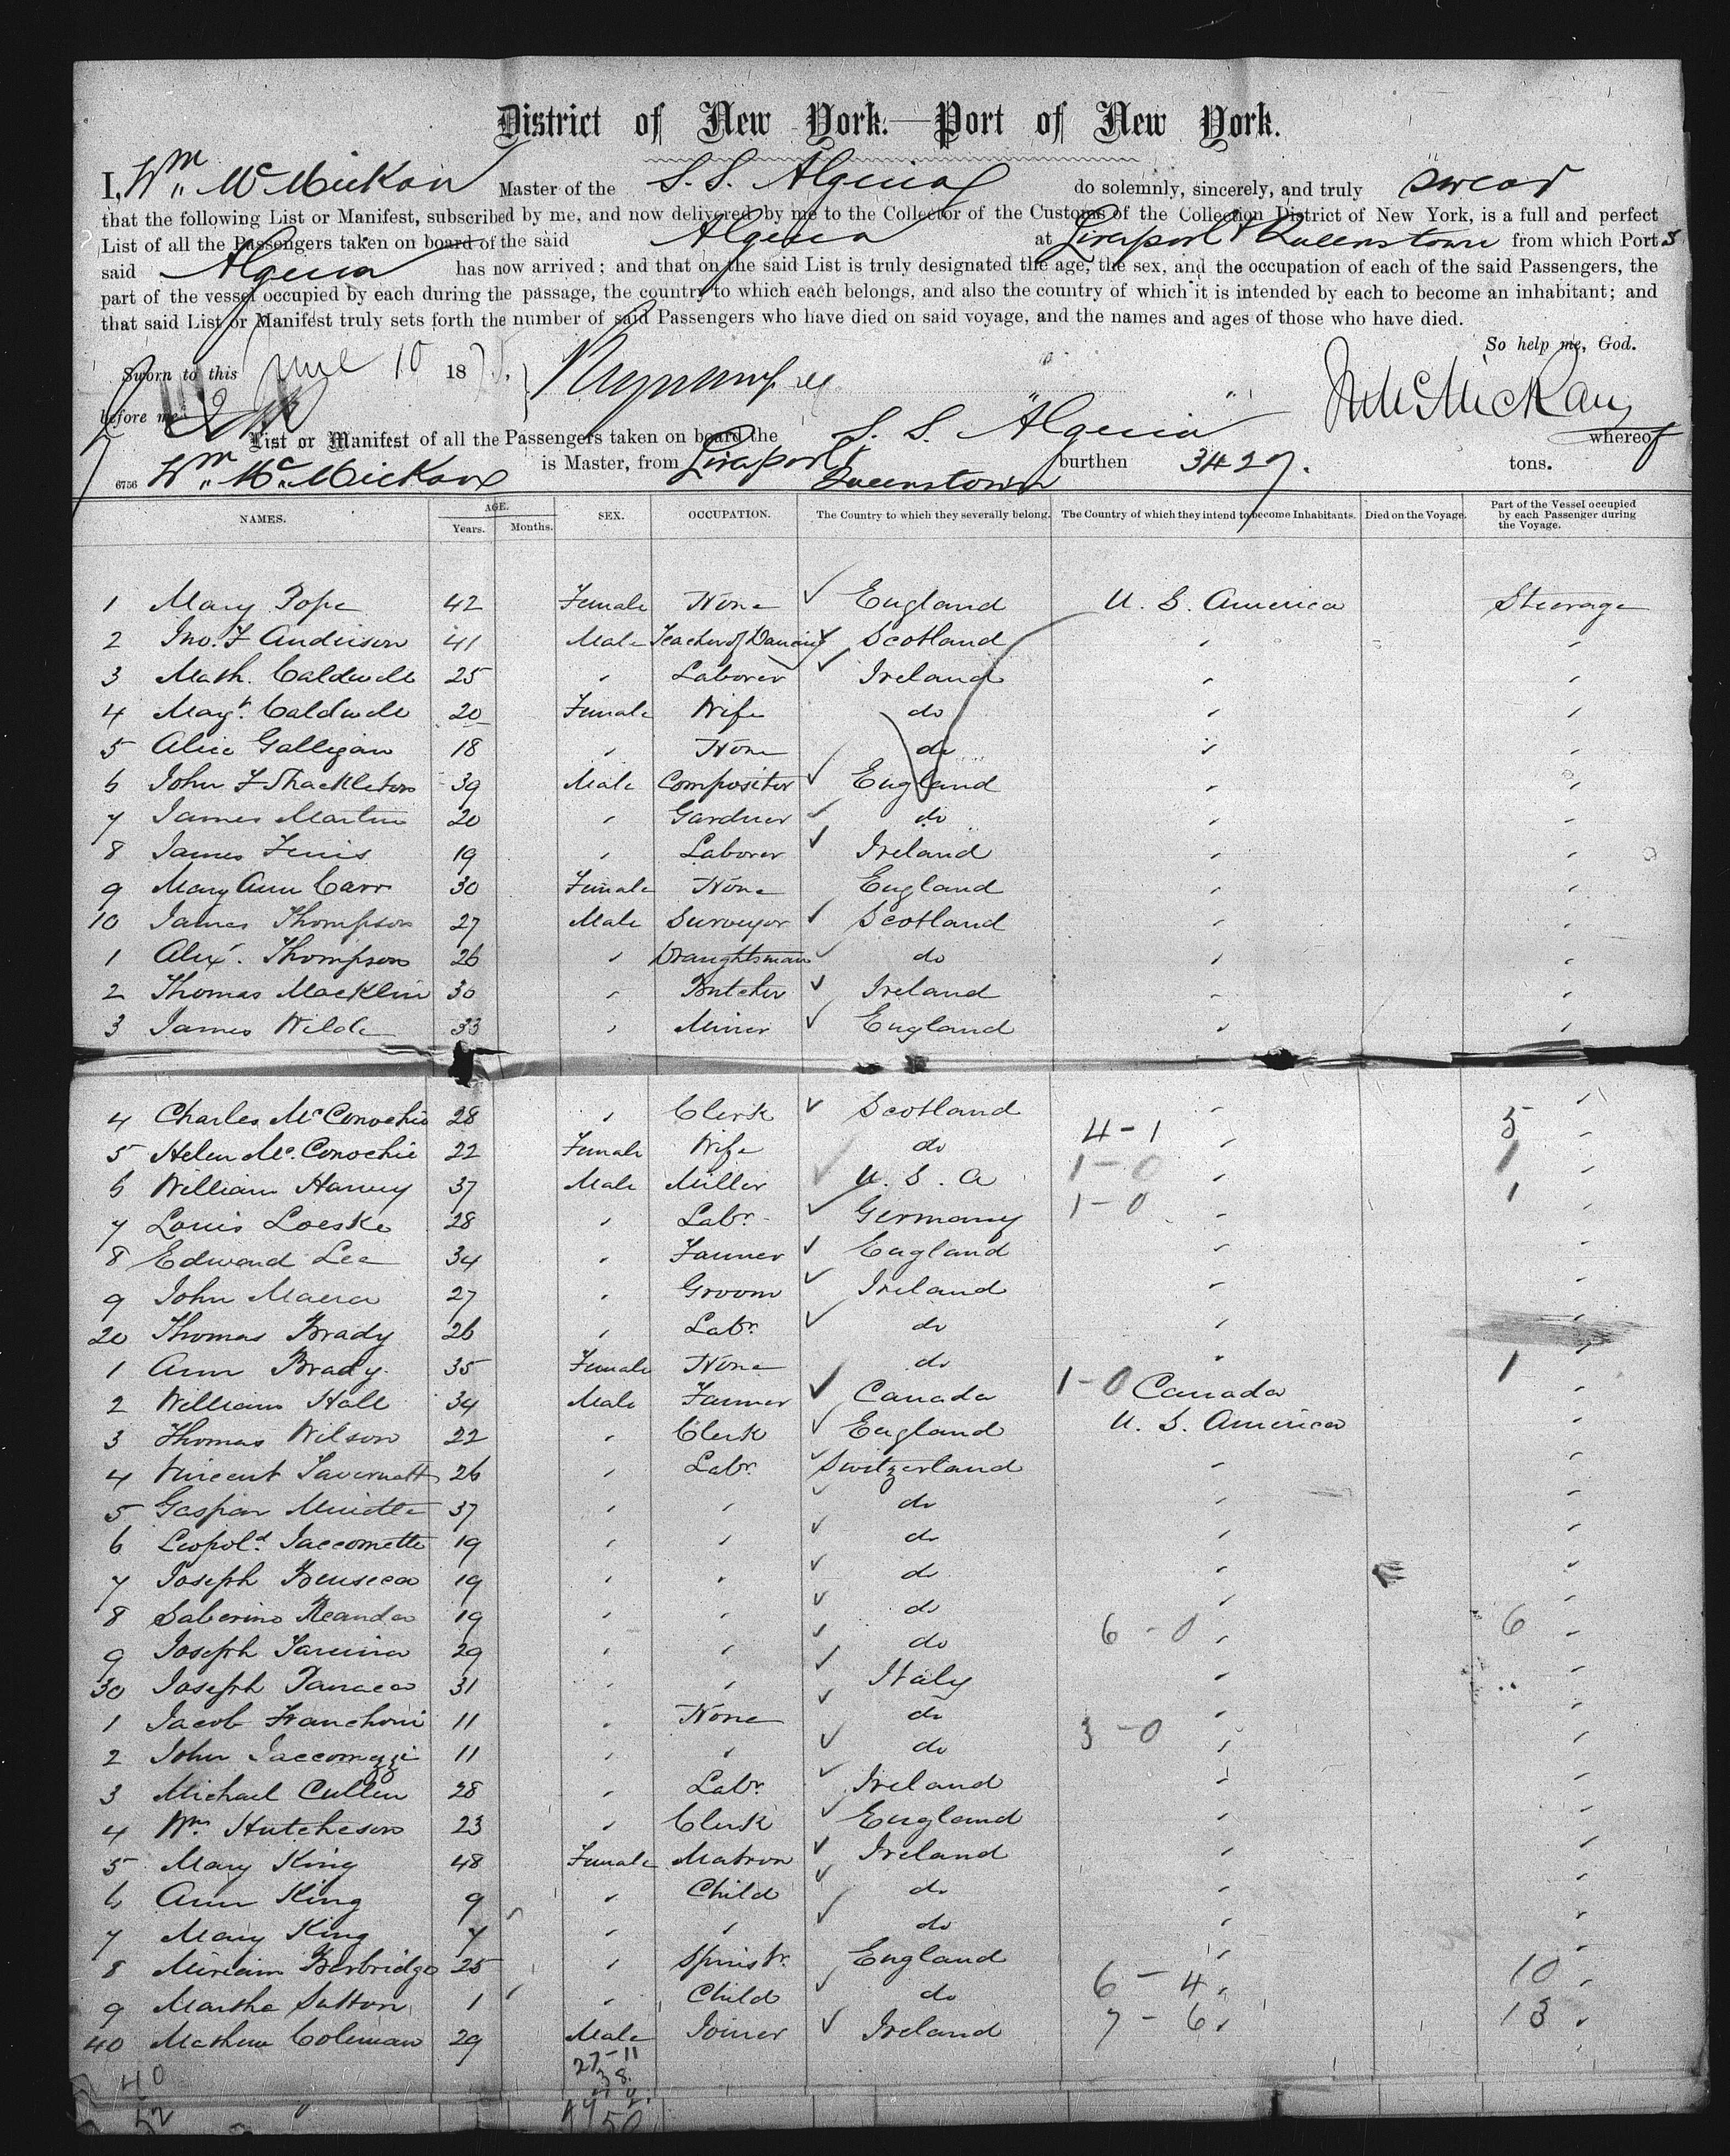 District of New York.—Port of New York.
I, Wm McMickan Master of the S.S. Algeria do solemnly, sincerely, and truly swear
that the following List or Manifest, subscribed by me, and now delivered by me to the Collector of the Customs of the Collection District of New York, is a full and perfect
List of all the Passengers taken on board of the said Algeria at Liverpool & Queenstown from which Port s
said Algeria has now arrived; and that on the said List is truly designated the age, the sex, and the occupation of each of the said Passengers, the
part of the vessel occupied by each during the passage, the country to which each belongs, and also the country of which it is intended by each to become an inhabitant; and
that said List or Manifest truly sets forth the number of said Passengers who have died on said voyage, and the names and ages of those who have died.
So help me, God.
Sworn to this June 10 187
before me
Wm McMickan
List or Manifest of all the Passengers taken on board the S. S. "Algeria" whereof
6756 Wm. McMickan is Master, from Liverpool & Queenstown burthen 3427. tons.
NAMES. AGE. Years. Months. SEX. OCCUPATION. The Country to which they severally belong. The Country of which they intend to become Inhabitants. Died on the Voyage. Part of the Vessel occupied by each Passenger during the Voyage.
1 Mary Pope 42 Female None England U. S. America Steerage
2 Jno. F Anderson 41 Male Teacher of Dancing Scotland "
3 Math. Caldwell 25 " Laborer Ireland "
4 Magt. Caldwell 20 Female Wife do "
5 Alice Galligan 18 " None do "
6 John F Shackleton 39 Male Compositor England "
7 James Martin 20 " Gardner do "
8 James Finis 19 " Laborer Ireland "
9 Mary Ann Carr 30 Female None England "
10 James Thompson 27 Male Surveyor Scotland "
1 Alex. Thompson 26 " Draughtsman do "
2 Thomas Macklin 30 " Butcher Ireland "
3 James Wilde 33 " Miner England "
4 Charles McConochie 28 " Clerk Scotland " 5
5 Helen McConochie 22 Female Wife do 4-1 " 1
6 William Harvey 37 Male Miller U. S. A 1-0 " 1
7 Louis Loeske 28 " Labr. Germany 1-0 "
8 Edward Lee 34 " Farmer England "
9 John Maera 27 " Groom Ireland "
20 Thomas Brady 26 " Labr. do "
1 Ann Brady 35 Female None do " 1
2 William Hall 34 Male Farmer Canada 1-0 Canada "
3 Thomas Wilson 22 " Clerk England U. S. America "
4 Vincent Tavernatti 26 " Labr. Switzerland "
5 Gaspar Miidtte 37 " " do "
6 Leopold. Jaccometti 19 " " do "
7 Joseph Benseca 19 " " do "
8 Saberino Reanda 19 " " do "
9 Joseph Taruina 29 " " do 6-0 " 6
30 Joseph Panaca 31 " " Italy "
1 Jacob Franchoni 11 " None do "
2 John Jaccomezzi 11 " " do 3-0 "
3 Michael Cullen 28 " Labr. Ireland "
4 Wm. Hutcheson 23 " Clerk England "
5 Mary King 48 Female Matron Ireland "
6 Ann King 9 " Child do "
7 Mary King 7 " " do "
8 Miriam Berbridge 25 " Spinstr. England "
9 Martha Sutton 1 " Child do 6-4 " 10
40 Mathew Coleman 29 Male Joiner Ireland 7-6 " 13
40 27-11
38
52 50